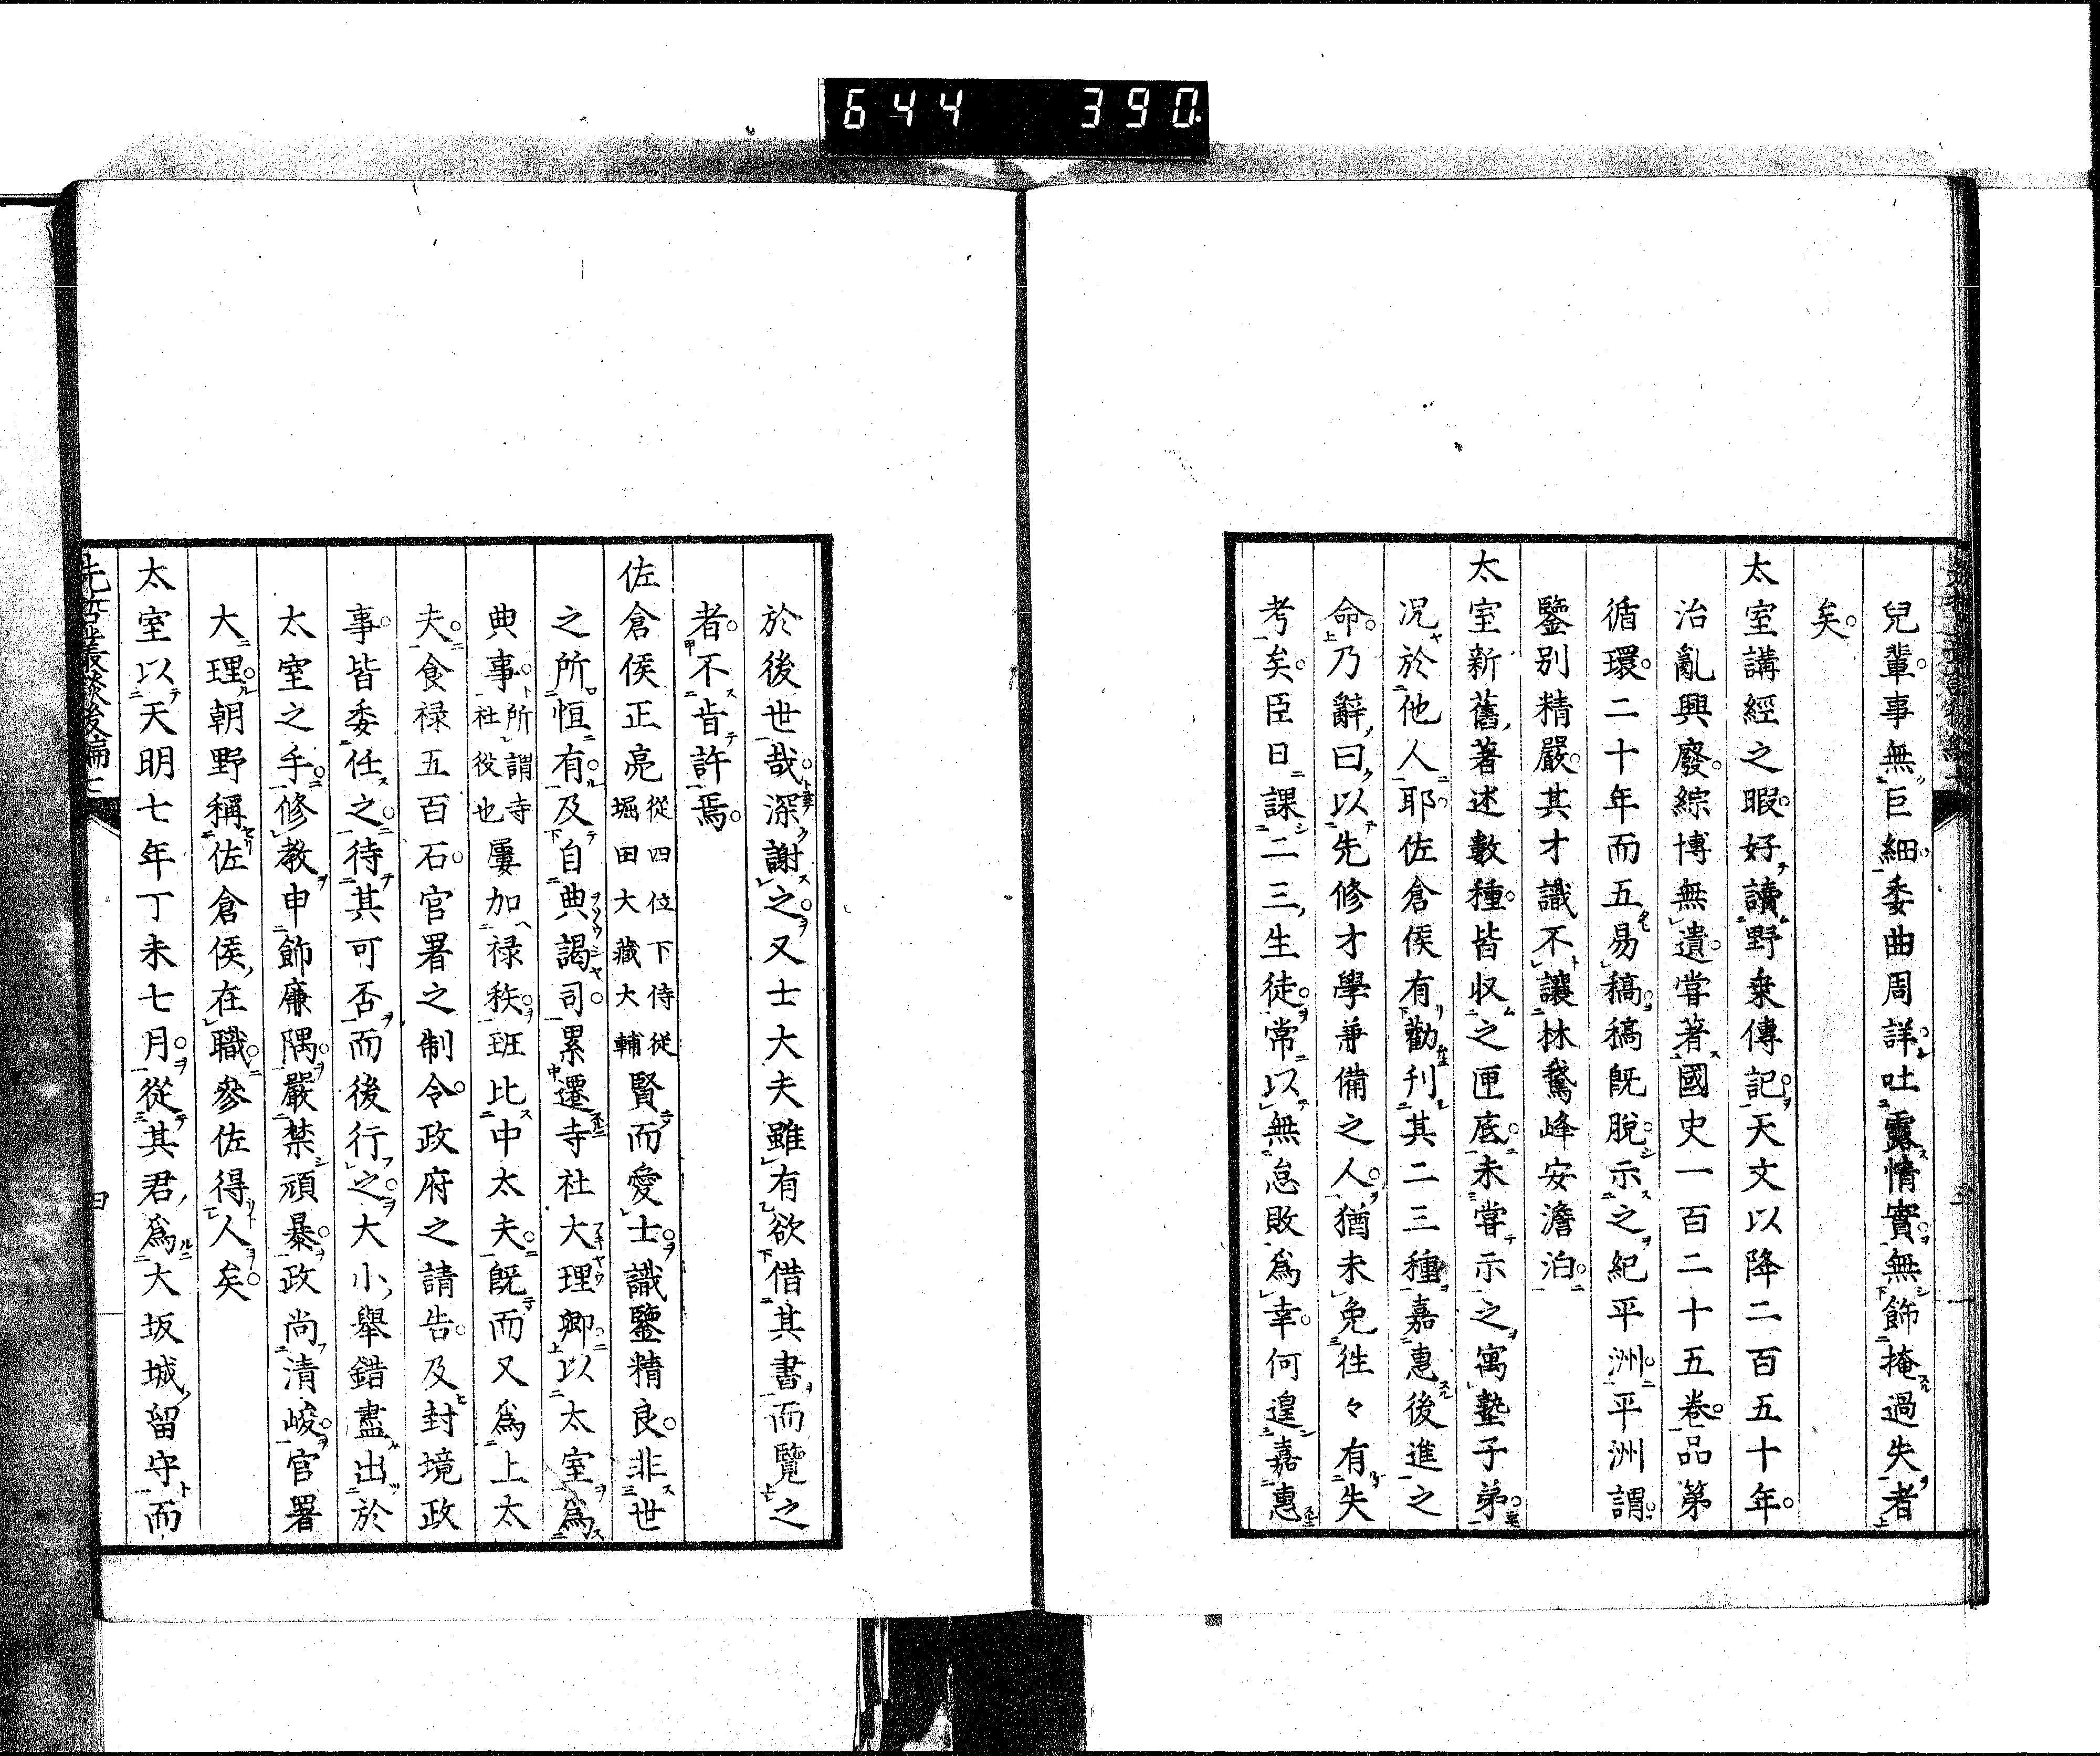 644 390
兒輩事無巨細委曲周詳吐露情實無飾掩過失者
矣
太室講經之暇好讀野乗傳記天文以降二百五十年
治亂興廢綜博無遺嘗著國史一百二十五卷品第
循環二十年而五易稿稿旣脫示之紀平洲平洲謂
鑒别精嚴其才識不讓林鵞峰安澹泊
太室新舊著述數種皆収之匣底未嘗示之寓塾子弟
况於他人耶佐倉侯有勸刋其二三種嘉惠後進之
命乃辭曰以先修才學兼備之人猶未免往々有失
考矣臣日課二三生徒常以無怠敗爲幸何遑嘉惠
於後世哉深謝之又士大夫雖有欲借其書而覽之
者不肯許焉
佐倉侯正亮從四位下侍從堀田大藏大輔賢而愛士識鑒精良非世
之所恒有及自典謁司累遷寺社大理卿以太室爲
典事所謂寺社役也屢加禄秩班比中太夫旣而又爲上太
夫食禄五百石官署之制令政府之請告及封境政
事皆委任之待其可否而後行之大小舉錯盡出於
太室之手修教申飾廉隅嚴禁頑暴政尚清峻官署
大理朝野稱佐倉侯在職參佐得人矣
太室以天明七年丁未七月從其君爲大坂城留守而
先哲叢談後編七